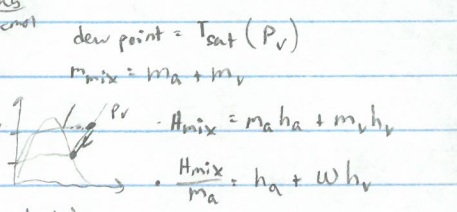 dew point = Tsat (Pv)
cmol
mmix = ma + mv
Pv
· Hmix = ma ha + mv hv
· Hmix/ma = ha + ω hv